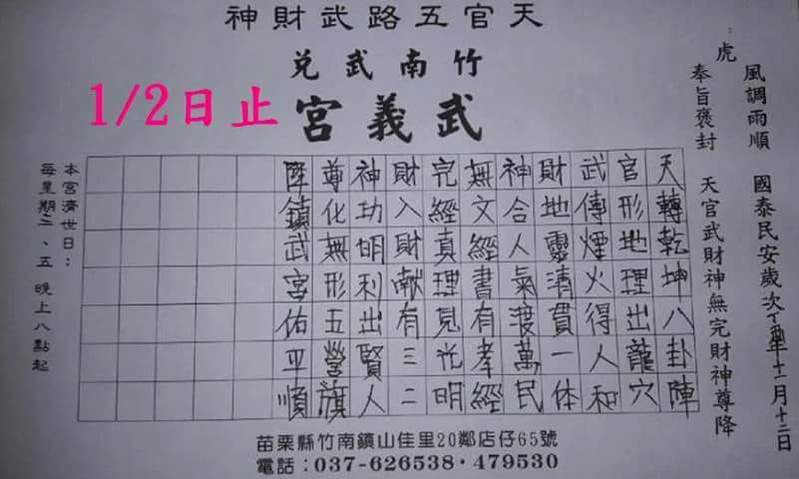 天官五路武財神
竹南武兌
武義宮
1/2日止
虎
風調雨順　國泰民安歲次丁酉年十一月十二日
奉旨褒封　天官武財神無完財神尊降
天轉乾坤八卦陣
官形地理出龍穴
武傳煙火得人和
財地靈清貫一体
神合人氣渡萬民
無文經書有孝經
完經真理見光明
財入財献有三二
神功明利出賢人
尊化無形五營旗
降鎮武宮佑平順
本宮濟世日：
每星期二、五　晚上八點起
苗栗縣竹南鎮山佳里20鄰店仔65號
電話：037-626538·479530